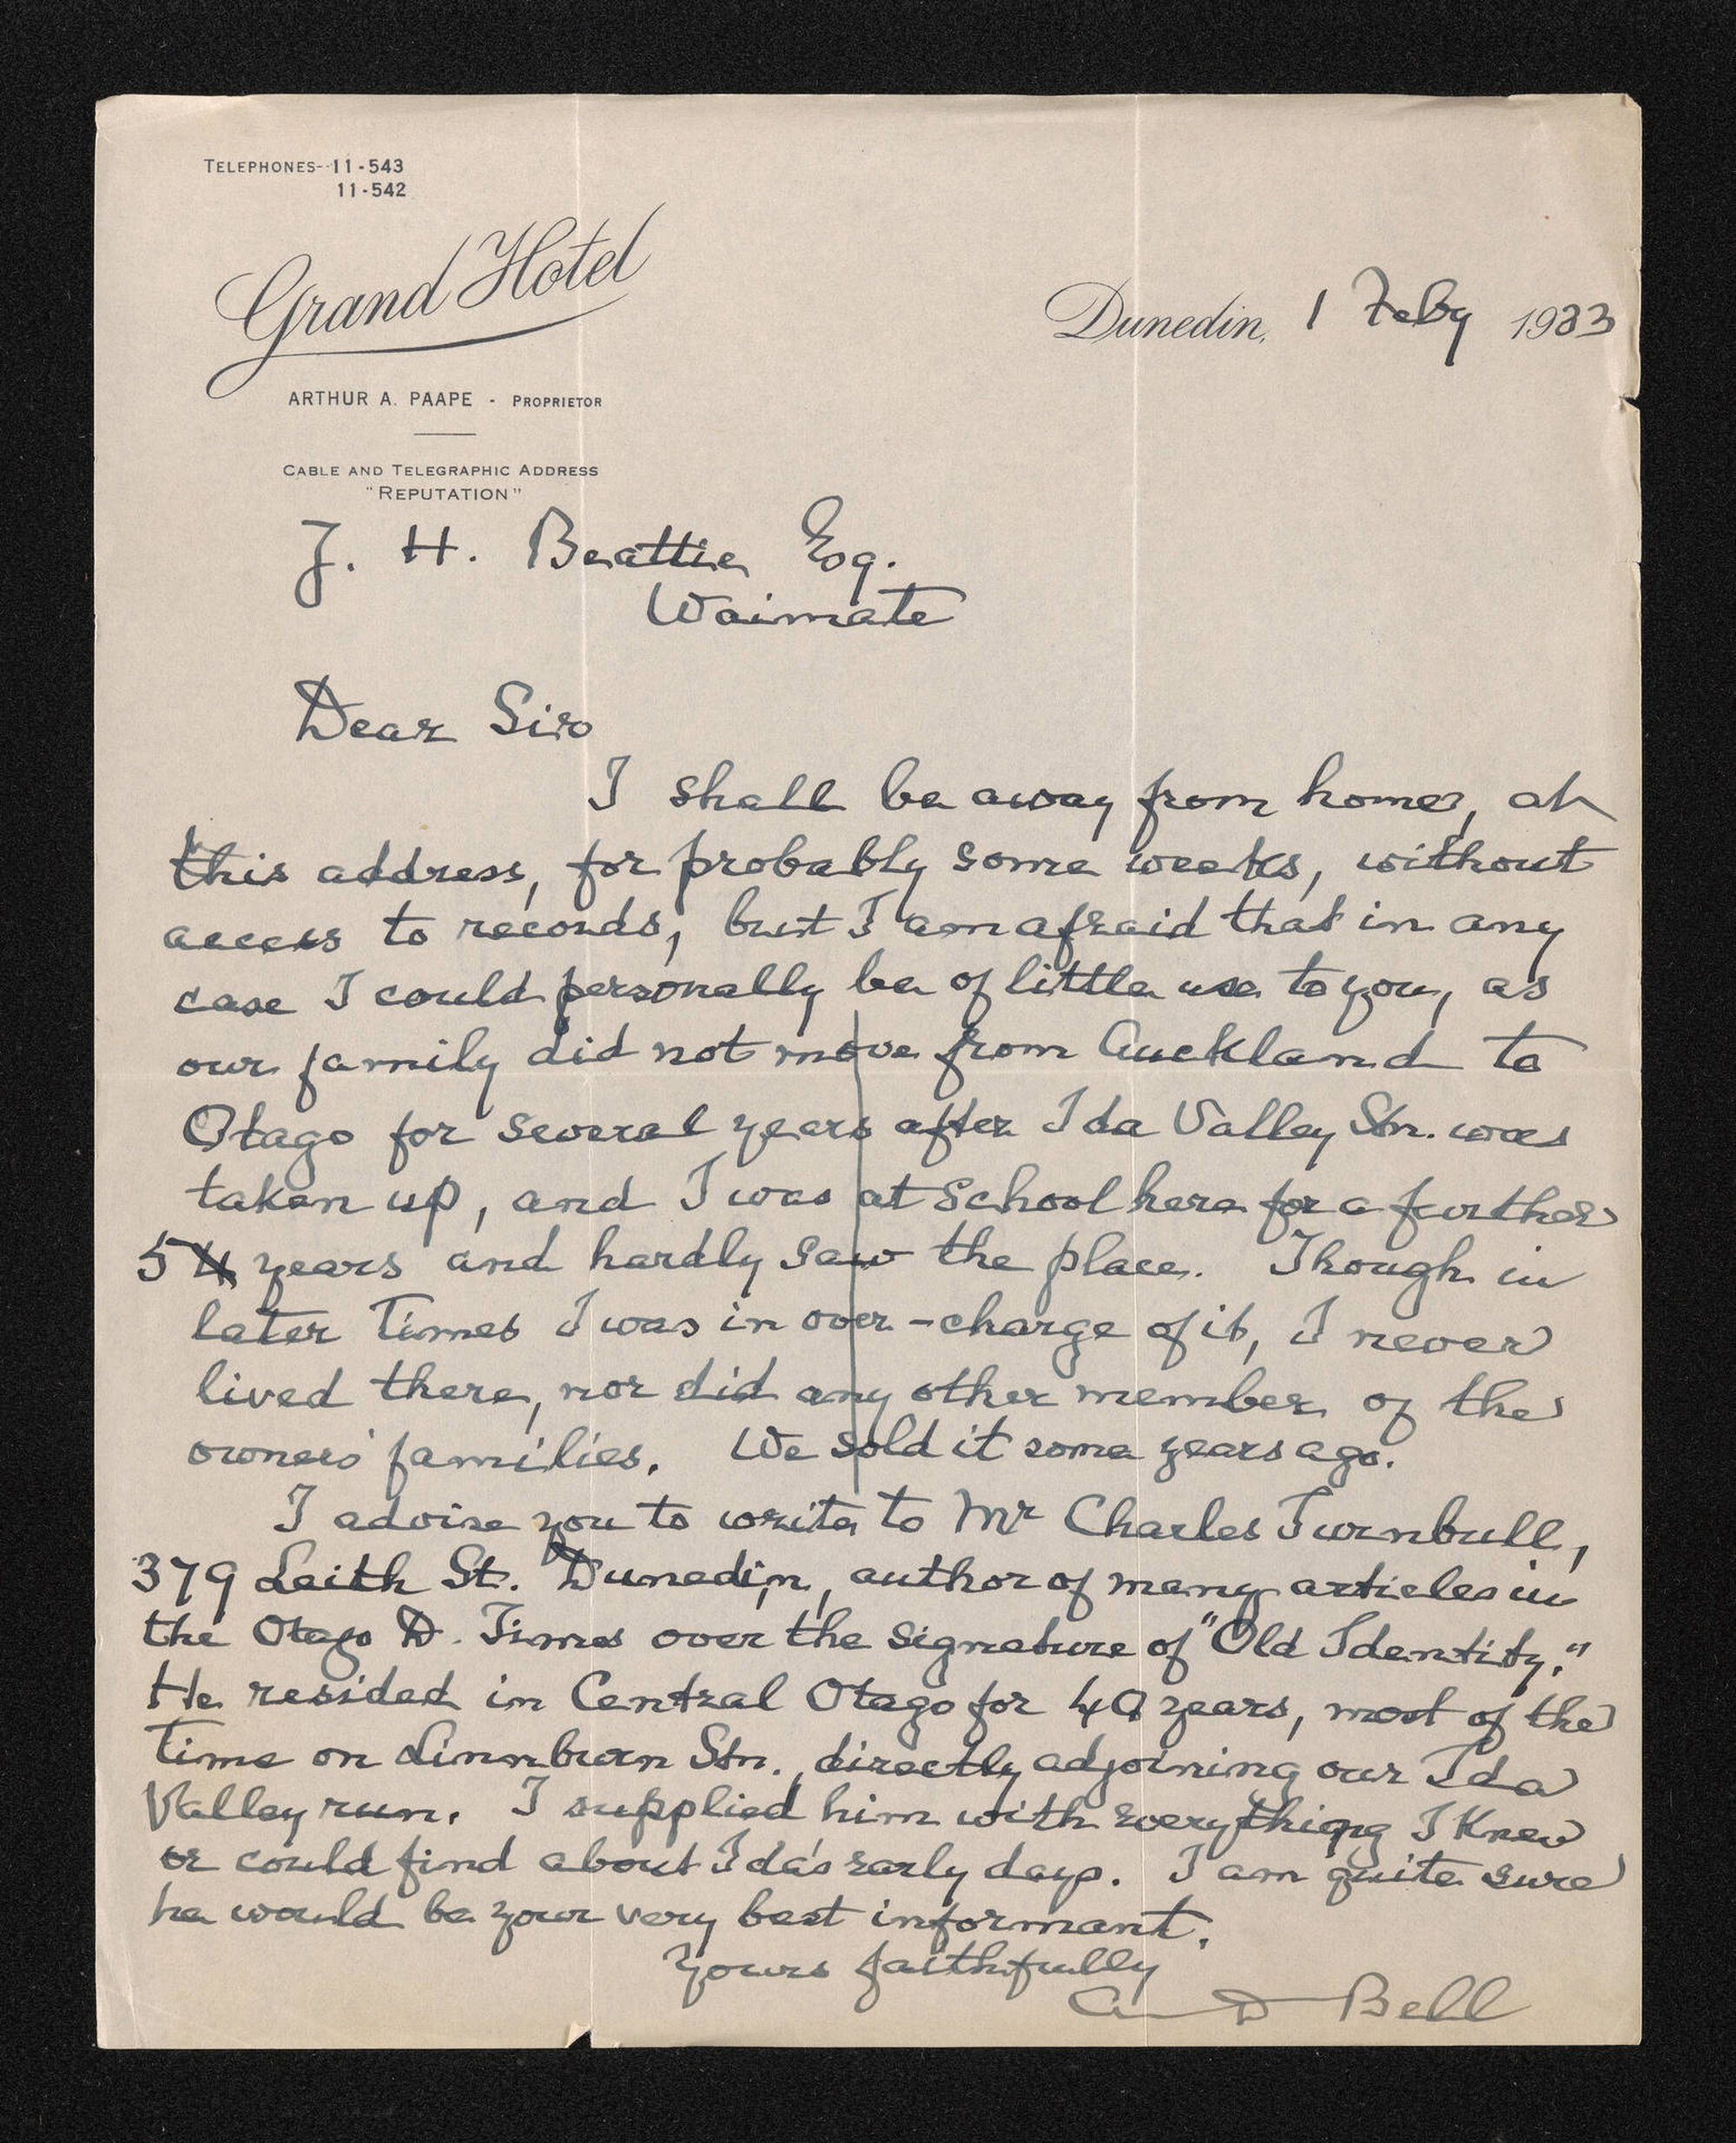 TELEPHONES--11-543
11-542
Grand Hotel
Dunedin, 1 Feby 1933
ARTHUR A. PAAPE - PROPRIETOR
CABLE AND TELEGRAPHIC ADDRESS
"REPUTATION"
J. H. Beattie Esq.
Waimate
Dear Sir
I shall be away from home, at
this address, for probably some weeks, without
access to records, but I am afraid that in any
case I could personally be of little use to you, as
our family did not move from Auckland to
Otago for several years after Ida Valley Stn. was
taken up, and I was at School here for a further
5 4 years and hardly saw the place. Though in
later times I was in over-charge of it, I never
lived there, nor did any other member of the
owners' families. We sold it some years ago.
I advise you to write to Mr Charles Turnbull,
379 Leith St. Dunedin, author of many articles in
the Otago D. Times over the signature of "Old Identity."
He resided in Central Otago for 40 years, most of the
time on Linnburn Stn., directly adjoining our Ida
Valley run. I supplied him with everything I knew
or could find about Ida's early days. I am quite sure
he would be your very best informant.
Yours faithfully
A D Bell